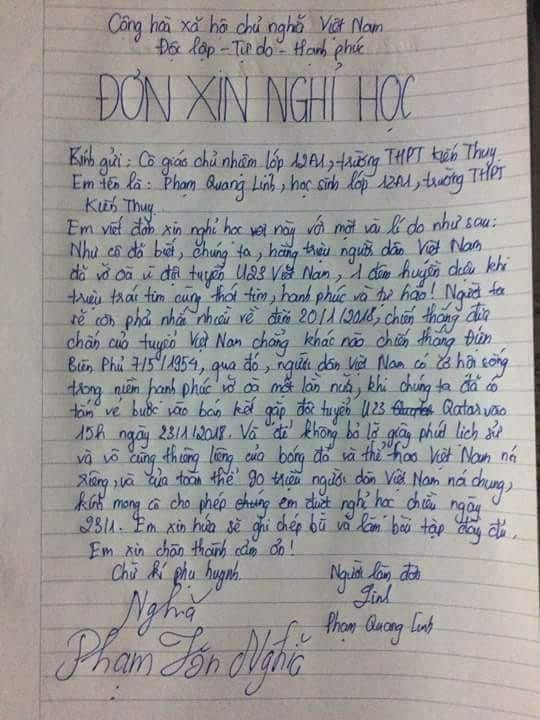 Công hoà xã hội chủ nghĩa Việt Nam
Độc lập - Tự do - Hạnh phúc
ĐƠN XIN NGHỈ HỌC
Kính gửi: Cô giáo chủ nhiệm lớp 12A1, trường THPT Kiến Thụy
Em tên là: Phạm Quang Linh, học sinh lớp 12A1, trường THPT
Kiến Thụy.
Em viết đơn xin nghỉ học này với một vài lí do như sau:
Như cô đã biết, chúng ta, hàng triệu người dân Việt Nam
đã vỡ oà vì đội tuyển U23 Việt Nam, 1 đêm huyền diệu khi
triệu trái tim cùng thót tim, hạnh phúc và tự hào! Người ta
sẽ còn phải nhắc nhiều về đêm 20/1/2018, chiến thắng địa
chấn của tuyển Việt Nam chẳng khác nào chiến thắng Điện
Biên Phủ 7/5/1954, qua đó, người dân Việt Nam có cơ hội sống
trong niềm hạnh phúc vỡ oà một lần nữa, khi chúng ta đã có
tấm vé bước vào bán kết gặp đội tuyển U23 Qatar vào
15h ngày 23/1/2018. Và để không bỏ lỡ giây phút lịch sử
và vô cùng thiêng liêng của bóng đá và thể thao Việt Nam nói
riêng, và của toàn thể 90 triệu người dân Việt Nam nói chung,
kính mong cô cho phép em được nghỉ học chiều ngày
23/1. Em xin hứa sẽ ghi chép bù và làm bài tập đầy đủ.
Em xin chân thành cảm ơn!
Chữ kí phụ huynh. Người làm đơn
Nghĩa Linh
Phạm Quang Linh
Phạm Văn Nghĩa